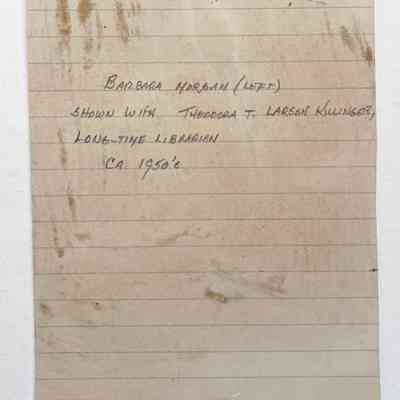 BARBARA MORGAN (LEFT)
SHOWN WITH THEODORA T. LARSEN KILLINGER,
LONG-TIME LIBRARIAN
CA. 1950's